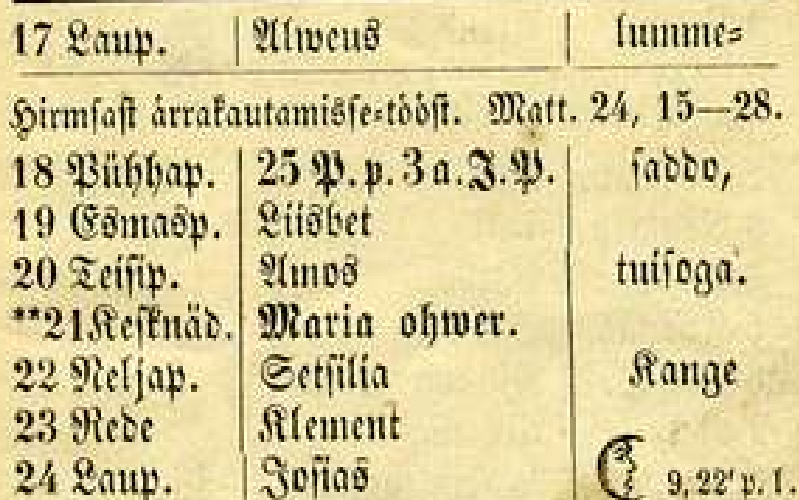 17 Laup. Alweus lumme-
Hirmsast ärrakautamisse-tööst. Matt. 24, 15—28.
18 Pühhap. 25 P. p. 3 a. J. P. saddo,
19 Esmasp. Liisbet
20 Teisip. Amos tuisoga.
**21 Kesknäd. Maria ohwer.
22 Neljap. Setsilia Kange
23 Rede Klement
24 Laup. Josias 9, 22' p. l.